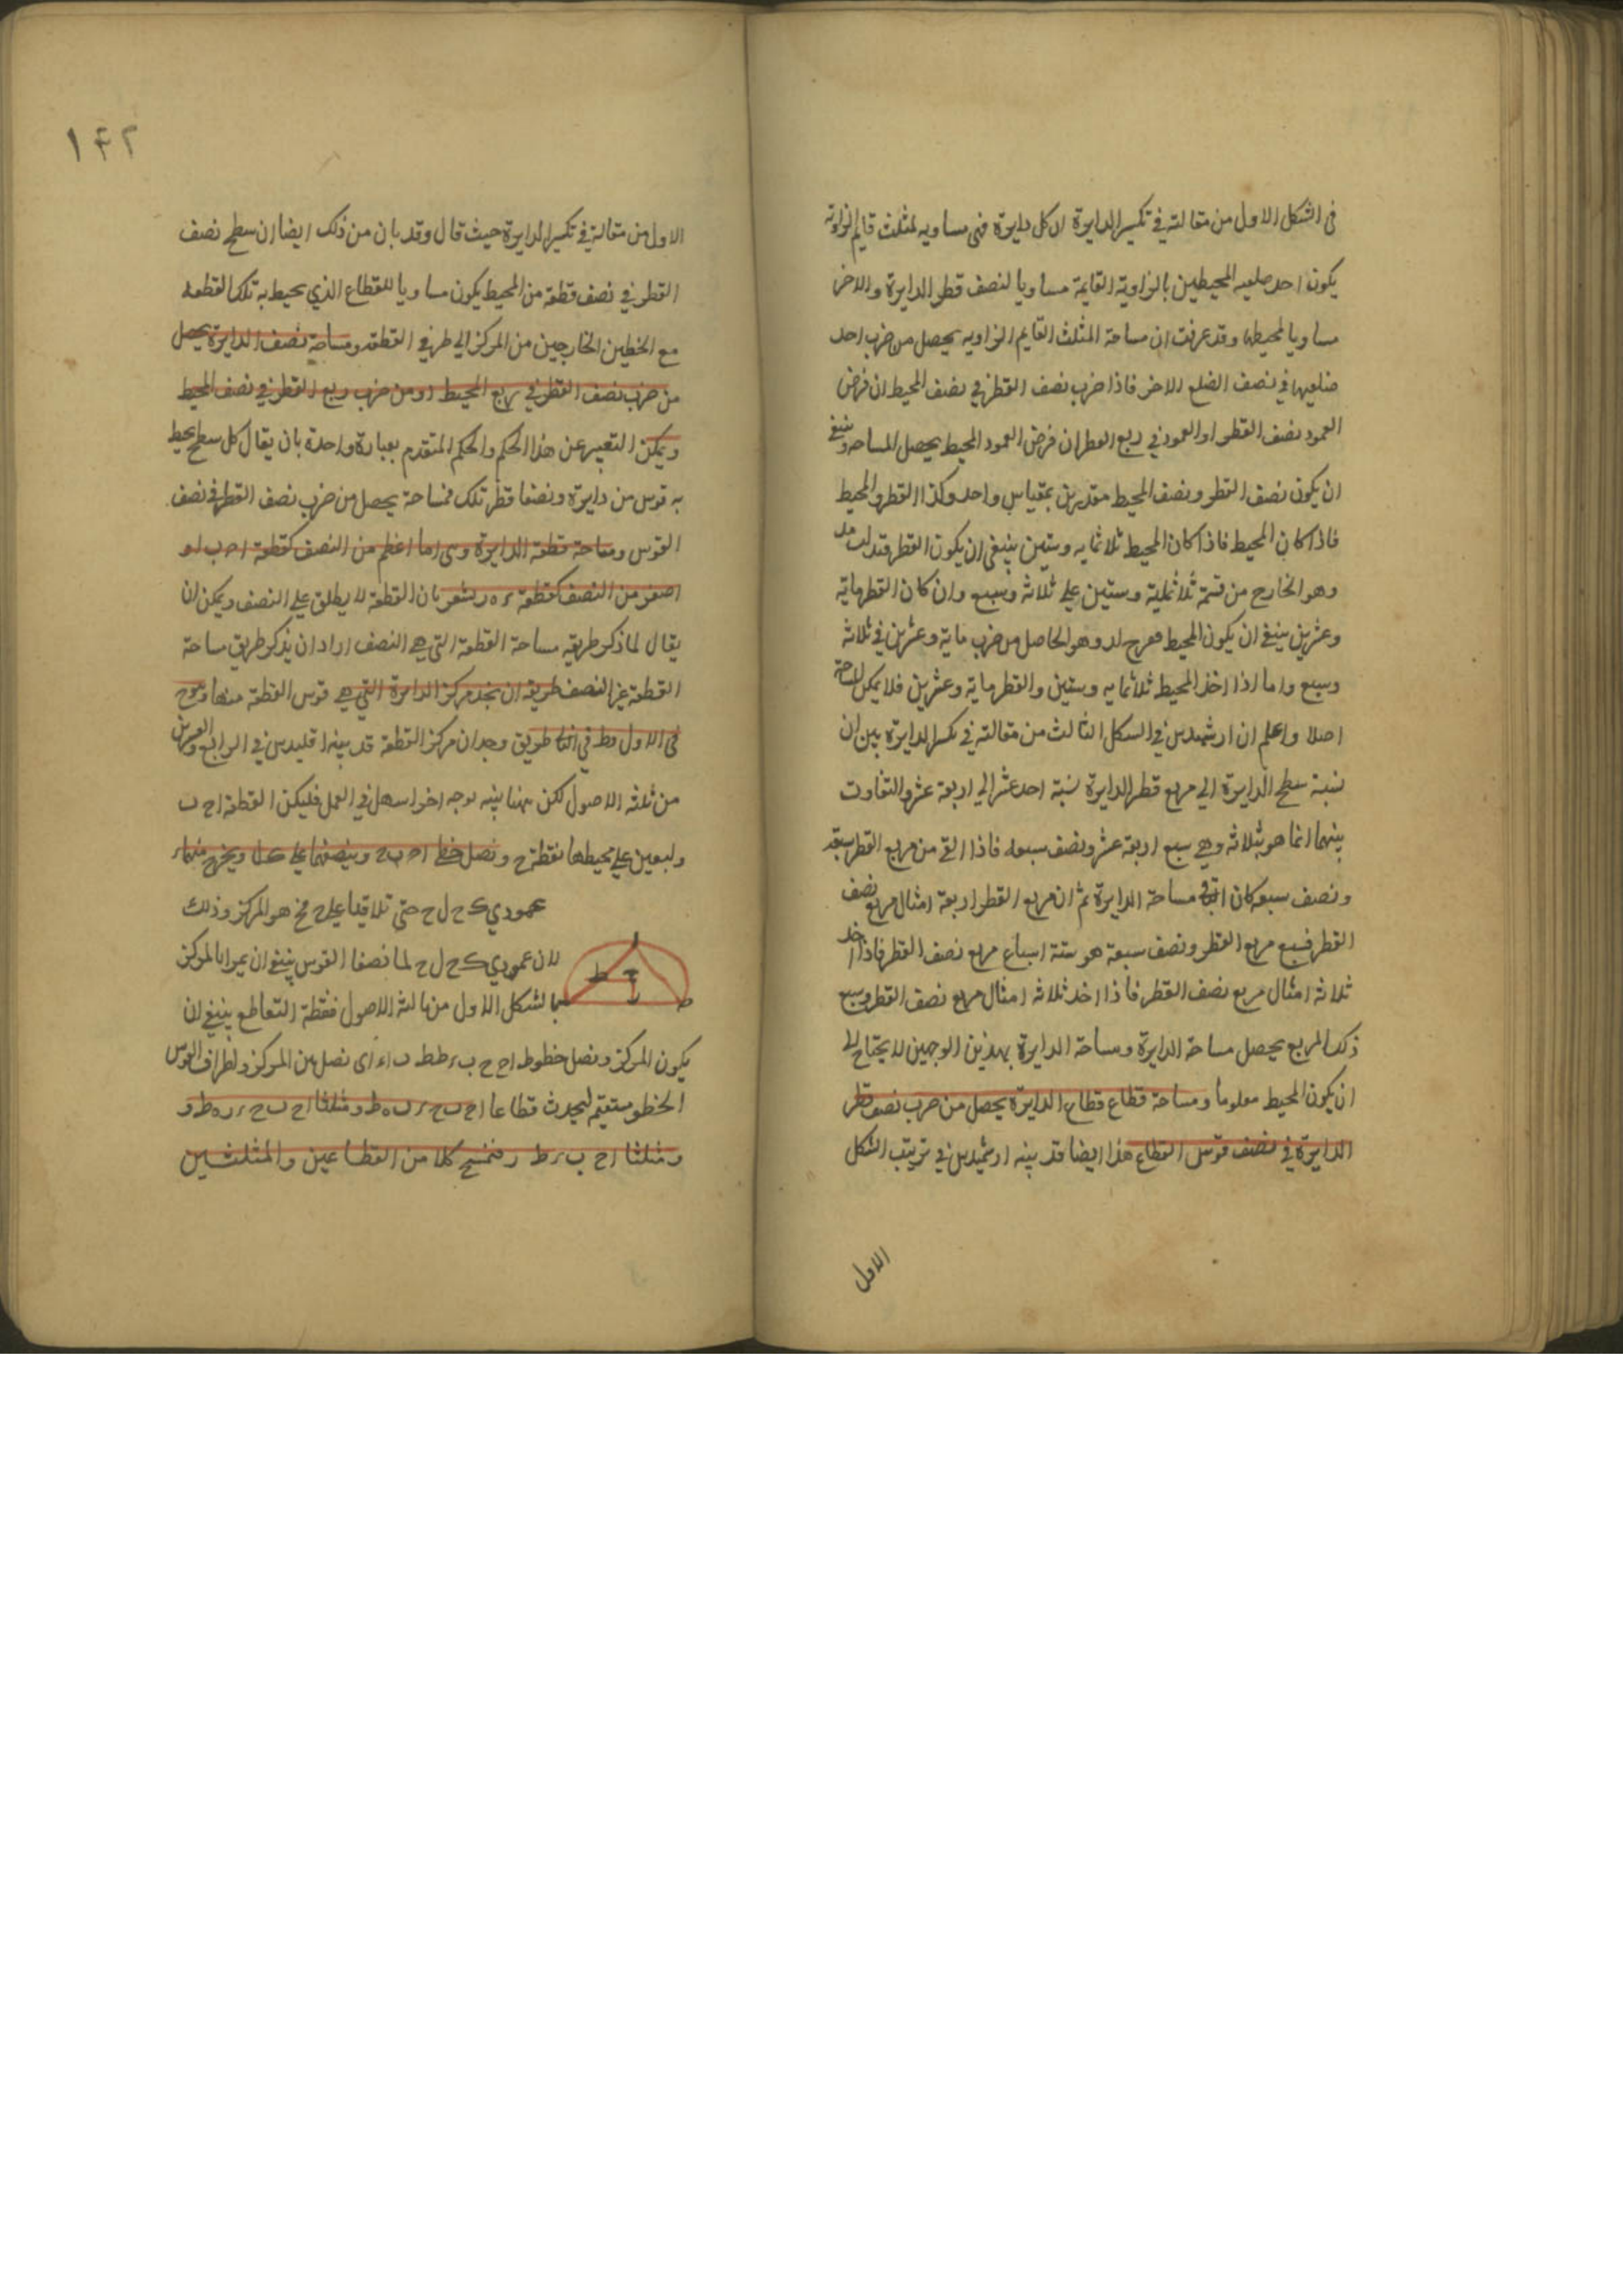 في الشكل الاول من مقالته في تكسير الدايرة ان كل دايرة فهي مساويه لمثلث قايم الزاوية
يكون احد ضلعيه المحيطين بالزاوية القايمة مساويا لنصف قطر الدايرة والاخر
مساويا لمحيطها وقد عرفت ان مساحة المثلث القايم الزاويه يحصل من ضرب احد
ضلعيها في نصف الضلع الاخر فاذا ضرب نصف القطر في نصف المحيط ان فرض
العمود نصف القطر او العمود في ربع القطر ان فرض العمود المحيط يحصل المساحه وينبغي
ان يكون نصف القطر ونصف المحيط مقدرين بمقياس واحد وكذا القطر والمحيط
فاذا كان المحيط فاذا كان المحيط ثلاثمايه وستين ينبغي ان يكون القطر
وهو الخارج من قسمة ثلاثماية وستين علي ثلاثة وسبع وان كان القطر ماية
وعشرين ينبغي ان يكون المحيط وهو الحاصل من ضرب ماية وعشرين في ثلاثة
وسبع واما اذا اخذ المحيط ثلاثمايه وستين والقطر ماية وعشرين فلا يمكن المساحة
اصلا واعلم ان ارشميدس في الشكل الثالث من مقالته في تكسير الدايرة بين ان
نسبة سطح الدايرة الي مربع قطر الدايرة نسبة احد عشر الي اربعة عشر والتفاوت
بينهما انما هو بثلاثة وهي سبع اربعة عشر ونصف سبعه فاذا القي من مربع القطر سبعه
ونصف سبعه كان الباقي مساحة الدايرة ثم ان مربع القطر اربعة امثال مربع نصف
القطر فسبع مربع القطر ونصف سبعه هو ستة اسباع مربع نصف القطر فاذا اخذ
ثلاثة امثال مربع نصف القطر فاذا اخذ ثلاثة امثال مربع نصف القطر وسبع
ذلك المربع يحصل مساحة الدايرة ومساحة الدايرة بهذين الوجهين لا يحتاج الي
ان يكون المحيط معلوما ومساحة قطاع قطاع الدايرة يحصل من ضرب نصف قطر
الدايرة في نصف قوس القطاع هذا ايضا قد بينه ارشميدس في ترتيب الشكل
الاول
١۴٢
الاول من مقالته في تكسير الدايرة حيث قال وقد بان من ذلك ايضا ان سطح نصف
القطر في نصف قطعة من المحيط يكون مساويا للقطاع الذي يحيط به تلك القطعه
مع الخطين الخارجين من المركز الي طرفي القطعه ومساحة نصف الدايرة يحصل
من ضرب نصف القطر في ربع المحيط او من ضرب ربع القطر في نصف المحيط
ويمكن التعبير عن هذا الحكم والحكم المتقدم بعبارة واحدة بان يقال كل سطح يحيط
به قوس من دايرة ونصفا قطر تلك فمساحة يحصل من ضرب نصف القطر في نصف
القوس ومساحة قطعة الدايرة وهي اما اعظم من النصف كقطعة ا ح ب او
اصغر من النصف كقطعة ء ه ر يشعر بان القطعة لا يطلق علي النصف ويمكن ان
يقال لما ذكر طريقه مساحة القطعة التي هي النصف اراد ان يذكر طريق مساحة
القطعة غير النصف طريقه ان نجد مركز الدايرة التي هي قوس القطعة منها وهو ح
في الاول وط في الثا طريق وجدان مركز القطعة قد بينه اقليدس في الرابع والعشرين
من ثلثه الاصول لكن ههنا بينه لوجه اخر اسهل في العمل فليكن القطعة ا ح ب
وليعين علي محيطها نقطة ح ونصل خطي ا ح ب ح وينصفهما علي ك ل ويخرج منهما
عمودي ك ح ل ح حتي تلاقيا علي ح فح هو المركز وذلك
لان عمودي ك ح ل ح لما نصفا القوس ينبغي ان يمرا بالمركز
بالشكل الاول من ثالثة الاصول فنقطة التقاطع ينبغي ان
يكون المركز ونصل خطوط ا ح ح ب ء ط ط ر اي نصل بين المركز ولطراف القوس
الخطو مستقيم ليحدث قطاعا ا ح ب ح ء ر ه ط ومثلثا ا ح ب ح ء ر ه ط و
ومثلثا ا ح ب ء ر ط فنمسح كلا من القطاعين والمثلثين